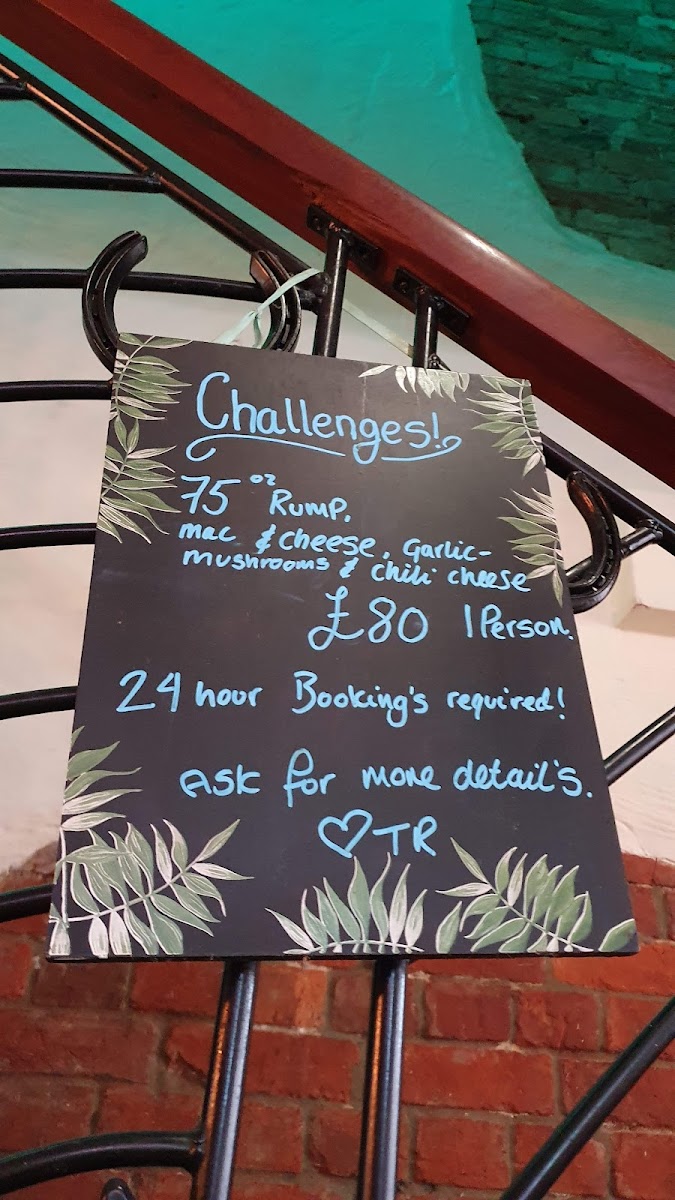 Challenges!
75 oz Rump,
mac & cheese, Garlic-
mushrooms & chili cheese
£80 1 Person.
24 hour Booking's required!
Ask for more detail's.
♡TR